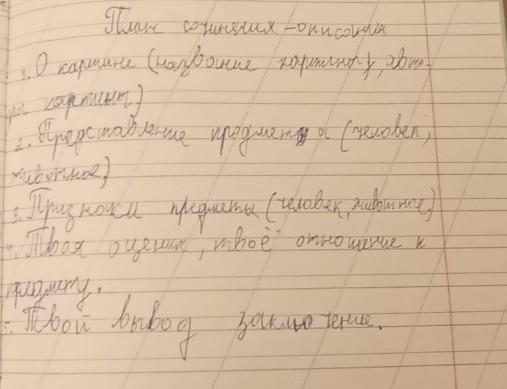 План сочинения-описания
1. О картине (название картины, авто-
ры картины)
2. Представление предметы (человек,
животное)
3. Признаки предметы (человек, животное)
4. Твоя оценка, твоё отношение к
предмету.
5. Твой вывод заключение.